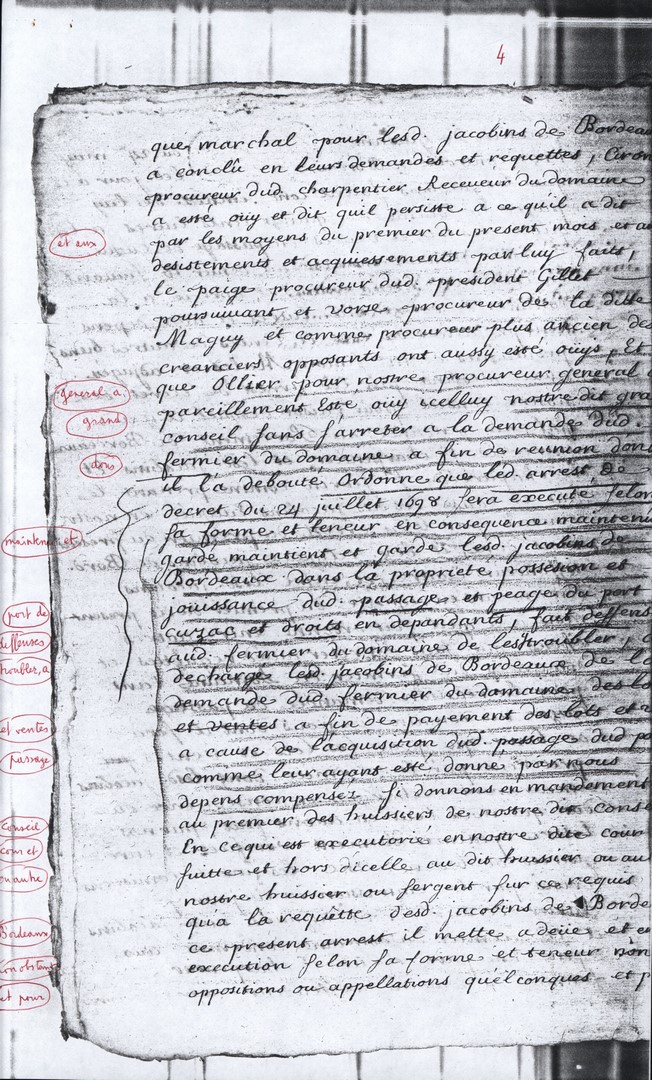 4
que marchal pour lesd. jacobins de Bordeau
a conclû en leurs demandes et requettes, Ciron
procureur dud. charpentier Receveur du domaine
a esté oüy et dit quil persiste a ce quil a dit
par les moyens du premier du present mois et au
et eux
desistements et acquiessements par luy faits,
le paige procureur dud. president Gillet
poursuivant et vorse procureur de la ditte
Maguy et comme procureur plus ancien des
creanciers opposants ont aussy esté ouys, Et
que Ollier pour nostre procureur general a
general a
pareillement Esté oüy icelluy nostre dit gra
grand
conseil sans s'arreter a la demande dud.
fermier du domaine a fin de reunion dont
dont
il l'a debouté Ordonne que led. arrest de
decret du 24 juillet 1698 sera executé selon
sa forme et teneur en consequence maintenu
maintenu et
garde maintient et garde lesd. jacobins de
Bordeaux dans la proprieté possession et
jouissance dud. passage et peage du port
port de
cuzac et droits en dépandants, fait deffens
deffenses
aud. fermier du domaine de les troubler, a
troubler, a
décharge lesd. jacobins de Bordeaux de la
demande dud. fermier du domaine des lo
et ventes a fin de payement des lots et v
et ventes
a cause de l'acquisition dud. passage dud po
passage
comme leur ayant esté donné par nous
depens compensez Si donnons en mandement
au premier des huissiers de nostre dit conse
Conseil
En ce qui est executorié en nostre dite cour
cour et
suitte et hors dicelle au dit huissier ou au
ou autre
nostre huissier ou sergent sur ce requis
qu'a la requêtte desd. jacobins de Borde
Bordeaux
ce present arrest il mette a deüe et en
execution selon sa forme et teneur non
nonobstant
oppositions ou appellations quelconques et p
et pour